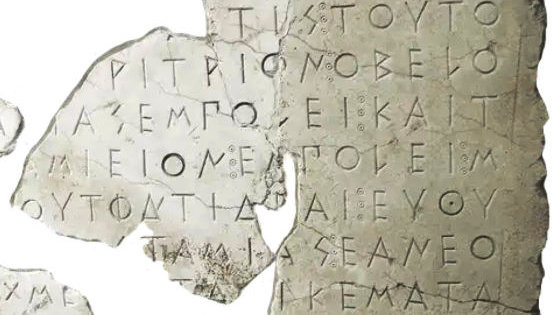 ΤΙΣ⋮ΤΟΥΤΟ
ΡΙΤΡΙΟΝΟΒΕΛΟ
ΙΑΣΕΜΠΟΛΕΙ⋮ΚΑΙΤ
ΜΙΕΙΟΝ⋮ΕΜΠΟΛΕΙ⋮Μ
ΟΥΤΟΝΤΙΔΡΑΙ⋮ΕΥΘΥ
ΤΑΜΙΑΣ⋮ΕΑΝΕΟ
ΧΜΕ ΤΑ ΙΚΕΜΑΤΑ